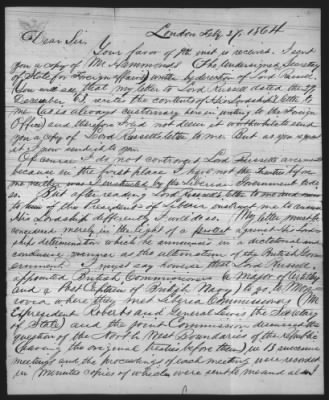 London Feby 27, 1864
Dear Sir,
Your favor of 7th inst is received. I sent
you a copy of Mr Hammonds (the Undersigned Secretary
of State for Foreign Affairs) written by direction of Lord Russell.
You will see, that my letter to Lord Russell dated the
December, 63 recites the contents of his Lordship's letter to
me (as is always customary here in writing to the Foreign
Office) and therefore I did not deem it worth while to send
you a copy of Lord Russell's letter to me. But as you request
it, I now send it to you.
Of course I do not controvert Lord Russell's
because in the first place I have not the
me neither was I instructed by the Liberian Government to do
so. But after reading Lord Russell's letter to me
to the President of Liberia instruct me to answer
his Lordship differently I will do so. My letter must be
considered merely in the light of a protest against his Lord-
ship's determination which he announces in a dictatorial and
manner as the ultimatum of the British Govern-
ment. I may say however that Lord Russell
appointed British Commissioners (a Major of Artillery
and a Post Captain of British Navy) to go to Mon-
rovia where they met Liberia Commissioners (Mr
Expresident Roberts and General Lewis the Secretary
of State) and the joint Commission discussed the
question of the North West Boundaries of the Republic
(having the original treaties before them) in 13 successive
meetings and the proceedings of each meeting were recorded
in Minutes copies of which were sent to me and also